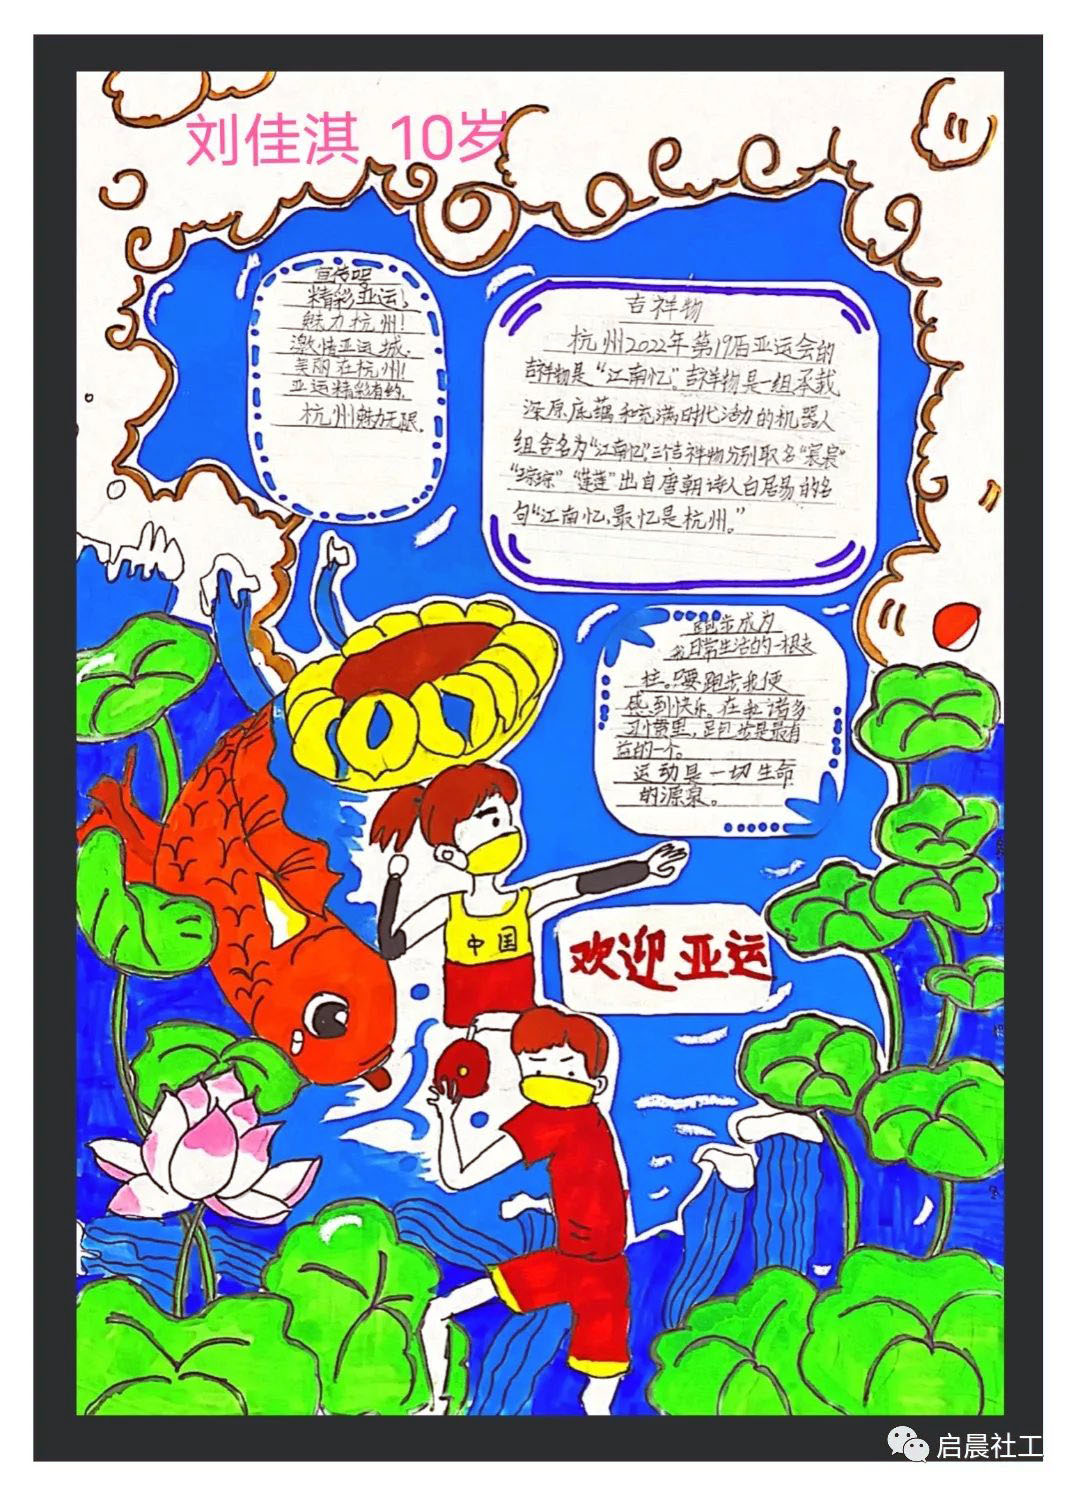 刘佳淇 10岁
宣传吧
精彩亚运,
魅力杭州!
激情亚运城,
美丽在杭州!
亚运精彩有约,
杭州魅力无限。
吉祥物
杭州2022年第19届亚运会的
吉祥物是“江南忆”。吉祥物是一组承载
深厚底蕴和充满时代活力的机器人
组合名为“江南忆”三个吉祥物分别取名“宸宸”
“琮琮”“莲莲”出自唐朝诗人白居易的名
句“江南忆,最忆是杭州。”
跑步成为
我日常生活的一根支
柱。只要跑步我便
感到快乐。在我诸多
习惯里,跑步是最有
益的一个。
运动是一切生命
的源泉。
中国
欢迎亚运
启晨社工